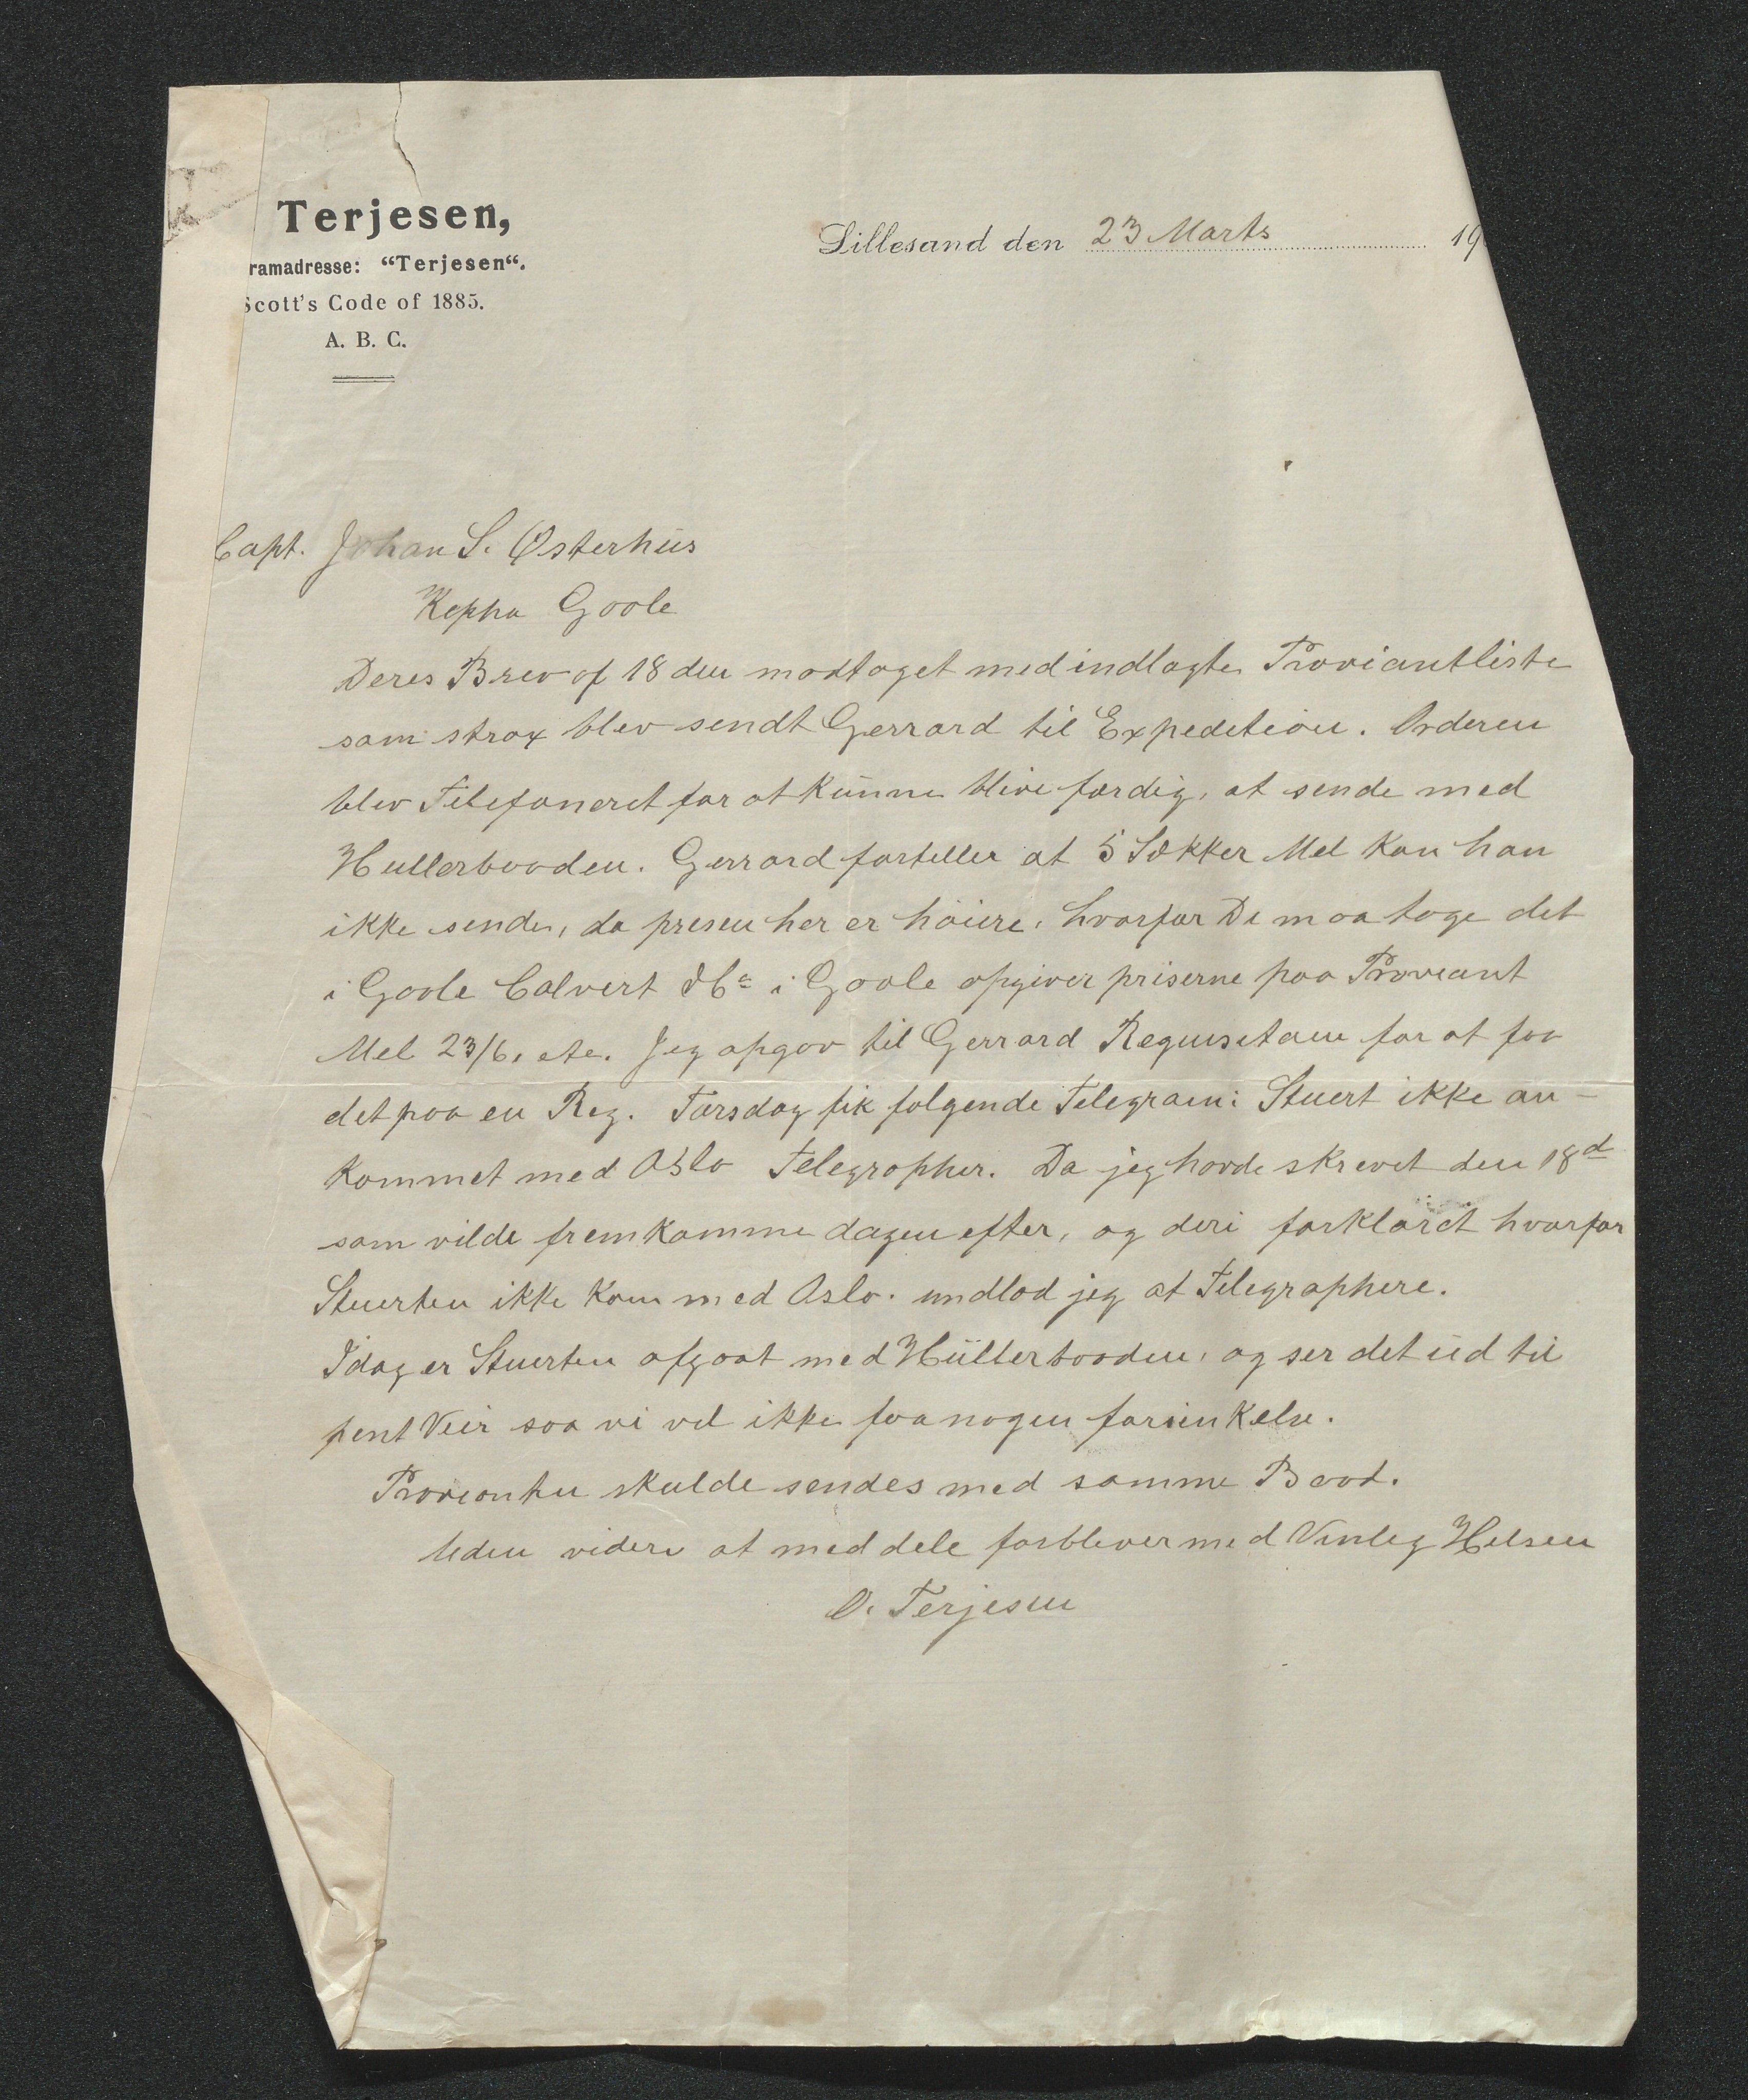 Terjesen,
ramadresse: “Terjesen“.
Scott's Code of 1885.
A. B. C.
Lillesand den 23 Marts 19
Capt. Johan S. Østerhus
Kepha Goole
Deres Brev af 18 den modtaget med indlagte Proviantliste
som strax blev sendt Gerrard til Expedition. Orderen
blev Telefoneret for at kunne blive færdig, at sende med
Hullerbaaden. Gerrard forteller at 5 Sækker Mel kan han
ikke sende, da prisen her er höiere, hvorfor De maa tage det
i Goole Calvert & Co i Goole opgiver priserne paa Proviant
Mel 23/6, etc. Jeg opgav til Gerrard Requisitam for at faa
det paa en Reg. Torsdag fik folgende Telegram: Stuert ikke an-
kommet med Oslo Telegropher. Da jeg havde skrevet den 18d
som vilde fremkomme dagen efter, og deri forklaret hvorfor
Stuerten ikke kom med Oslo. undlod jeg at Telegraphere.
Idag er Stuerten afgaat med Hullerbaaden, og ser det ud til
pent Veir saa vi vel ikke faa nogen forsinkelse.
Provianten skulde sendes med samme Baad.
Uden videre at meddele forbliver med Venlig Hilsen
O. Terjesen